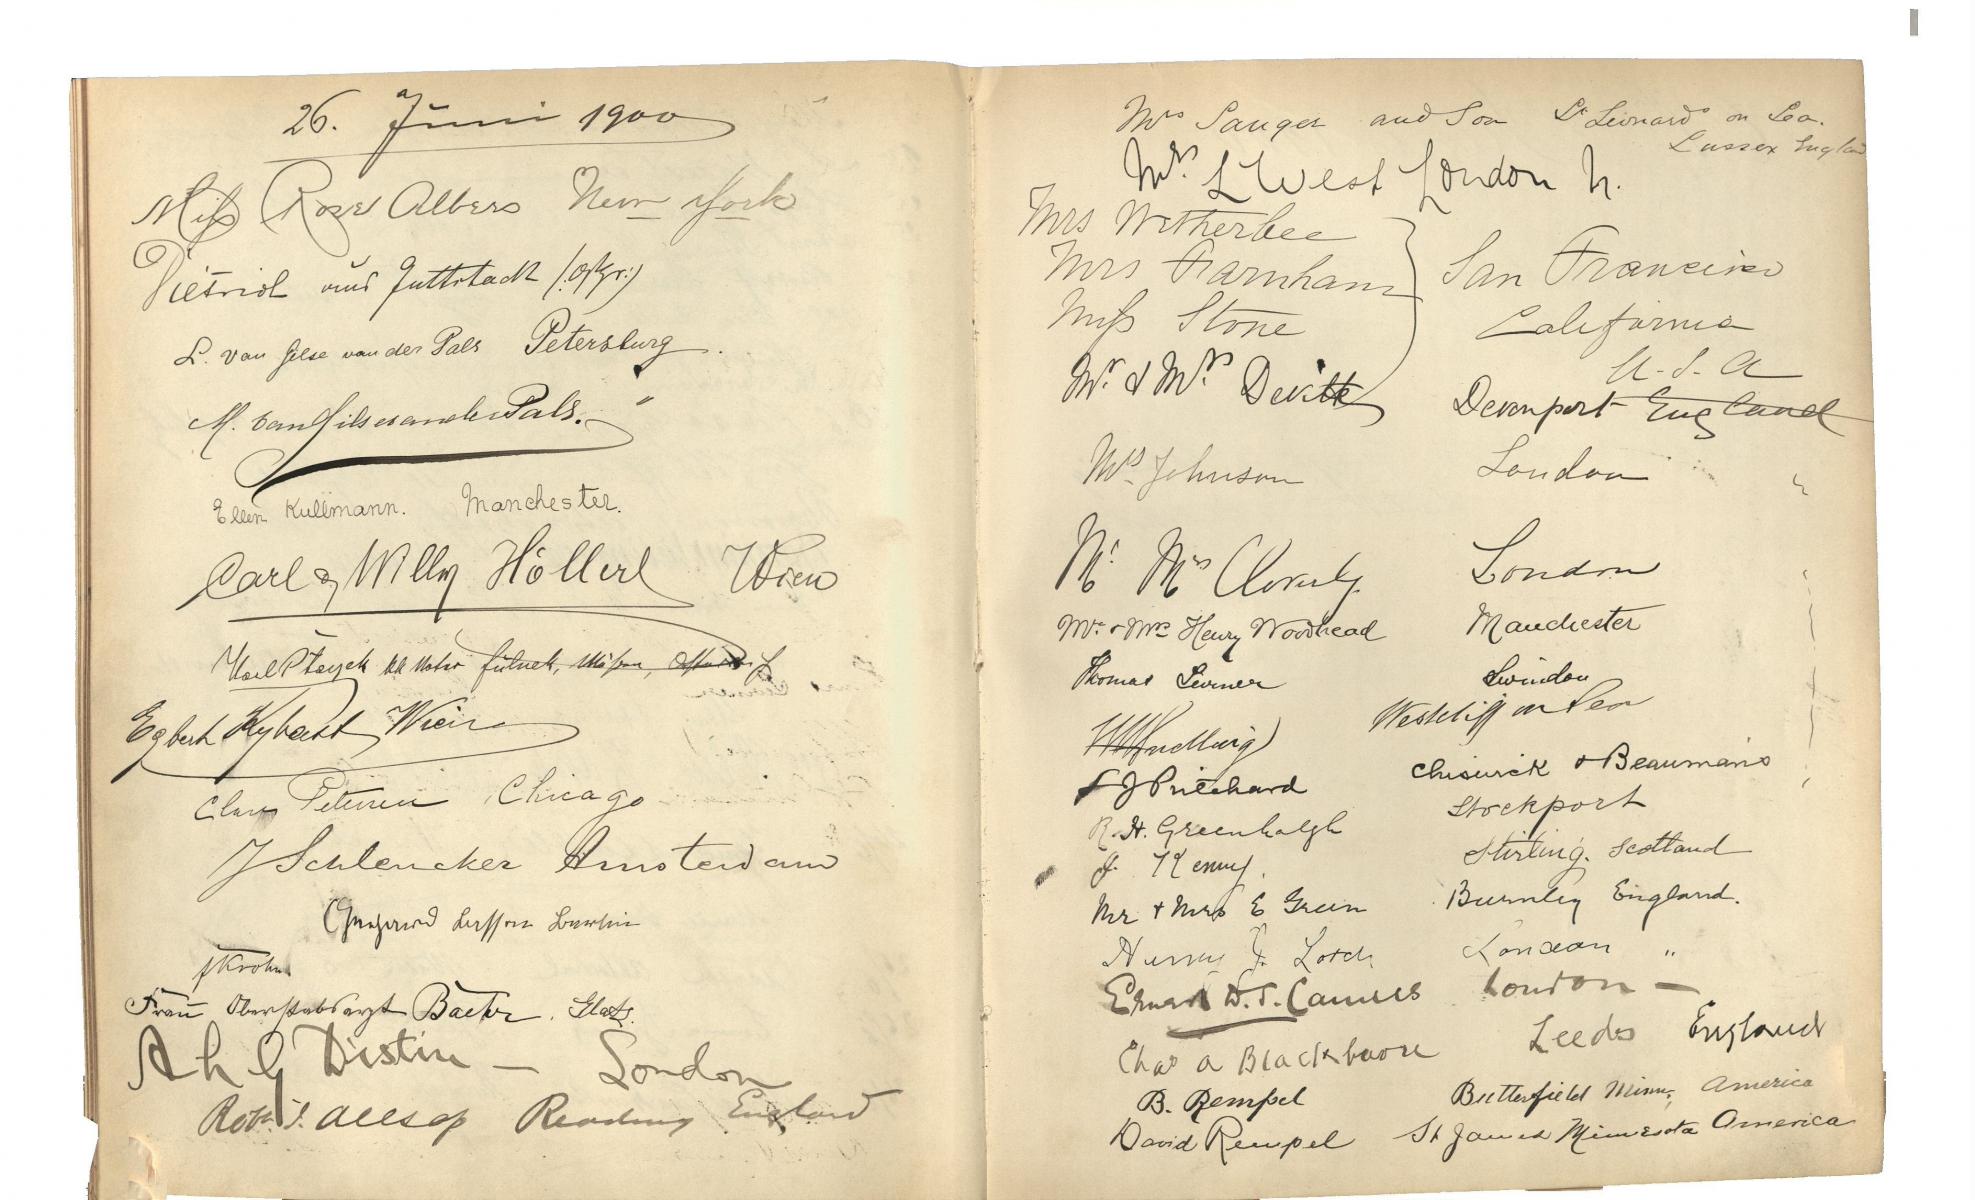 26. Juni 1900
Miss Rose Albers New York
Dietrich und Guttstadt (:Ostpr:)
L. van Gilse van der Pals Petersburg.
M. van Gilse van der Pals. "
Ellen Kullmann. Manchester.
Carl & Willy Höllerl Wien
Karl
Egbert Wien
Claus Petersen Chicago
J Schlencker Amsterdam
Berlin
J Krohn
Frau Oberstabsarzt Baetke. Glatz.
A h G Distin — London
Robt. J. Allsop Reading England
Mrs Sanger and Son St Leonards on Sea.
Sussex England
Mrs. L West London N.
Mrs Wetherbee
Mrs Farnham San Francisco
Miss Stone California
U. S. A
Mr. & Mrs. Devitt Devonport England
Mrs Johnson London
Mr Mrs Cloverly London
Mr. & Mrs Henry Woodhead Manchester
Thomas Swindon
Westcliff on Sea
J Pritchard Chiswick & Beaumaris
R. H. Greenhalgh Stockport
J. Kenny. Stirling. Scotland
Mr & Mrs E Green Burnley England.
Henry J. Lorch London "
D. S. London —
Chas A Blackburn Leeds England
B. Rempel Butterfield Minn, America
David Rempel St James Minnesota America